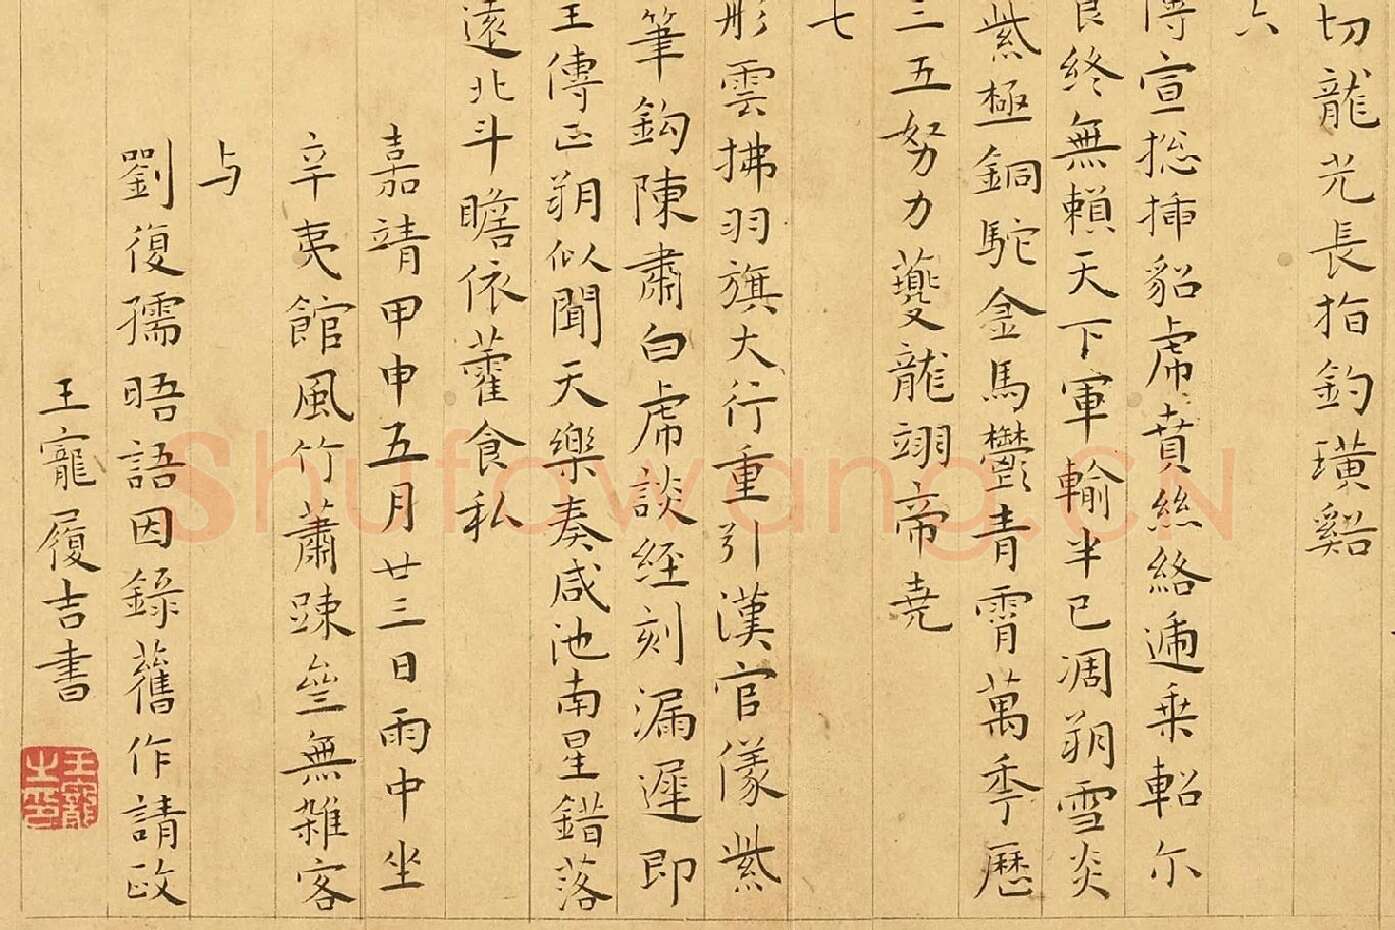 切龍光長指鈞璜谿
六
傳宣揔揷貂虎賁絲絡逓乗軺尓
良終無賴天下軍輸半已凋朔雪炎
紫極銅駝金馬鬱青霄萬秊歷
三五努力夔龍翊帝堯
七
彤雲拂羽旗大行重引漢官儀紫
筆鈎陳肅白虎談経刻漏遲即
王傳正朔似聞天樂奏咸池南星錯落
遠北斗瞻依藿食私
嘉靖甲申五月廿三日雨中坐
辛夷館風竹蕭踈無雜客
与
劉復孺晤語因錄舊作請政
王寵履吉書
王寵之印
Shufawang.CN